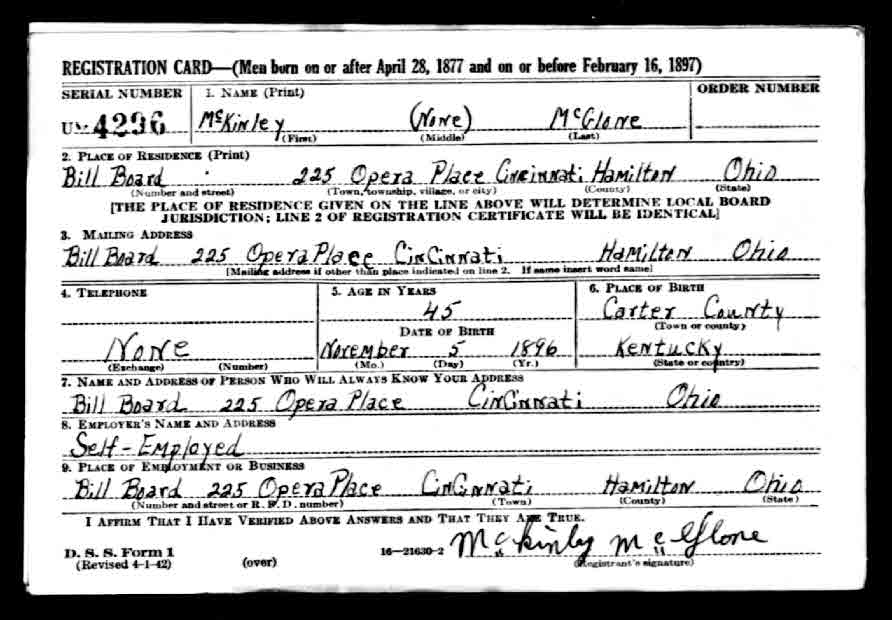 REGISTRATION CARD—(Men born on or after April 28, 1877 and on or before February 16, 1897)
SERIAL NUMBER 1. NAME (Print) ORDER NUMBER
U 4296 McKinley (None) McGlone
(First) (Middle) (Last)
2. PLACE OF RESIDENCE (Print)
Bill Board 225 Opera Place Cincinnati Hamilton Ohio
(Number and street) (Town, township, village, or city) (County) (State)
[THE PLACE OF RESIDENCE GIVEN ON THE LINE ABOVE WILL DETERMINE LOCAL BOARD
JURISDICTION; LINE 2 OF REGISTRATION CERTIFICATE WILL BE IDENTICAL]
3. MAILING ADDRESS
Bill Board 225 Opera Place Cincinnati Hamilton Ohio
[Mailing address if other than place indicated on line 2. If same insert word same]
4. TELEPHONE 5. AGE IN YEARS 6. PLACE OF BIRTH
45 Carter County
DATE OF BIRTH (Town or county)
None November 5 1896 Kentucky
(Exchange) (Number) (Mo.) (Day) (Yr.) (State or country)
7. NAME AND ADDRESS OF PERSON WHO WILL ALWAYS KNOW YOUR ADDRESS
Bill Board 225 Opera Place Cincinnati Ohio
8. EMPLOYER'S NAME AND ADDRESS
Self-Employed
9. PLACE OF EMPLOYMENT OR BUSINESS
Bill Board 225 Opera Place Cincinnati Hamilton Ohio
(Number and street or R. F. D. number) (Town) (County) (State)
I AFFIRM THAT I HAVE VERIFIED ABOVE ANSWERS AND THAT THEY ARE TRUE.
D. S. S. Form 1 16—21630-2 McKinly McGlone
(Revised 4-1-42) (over) (Registrant's signature)